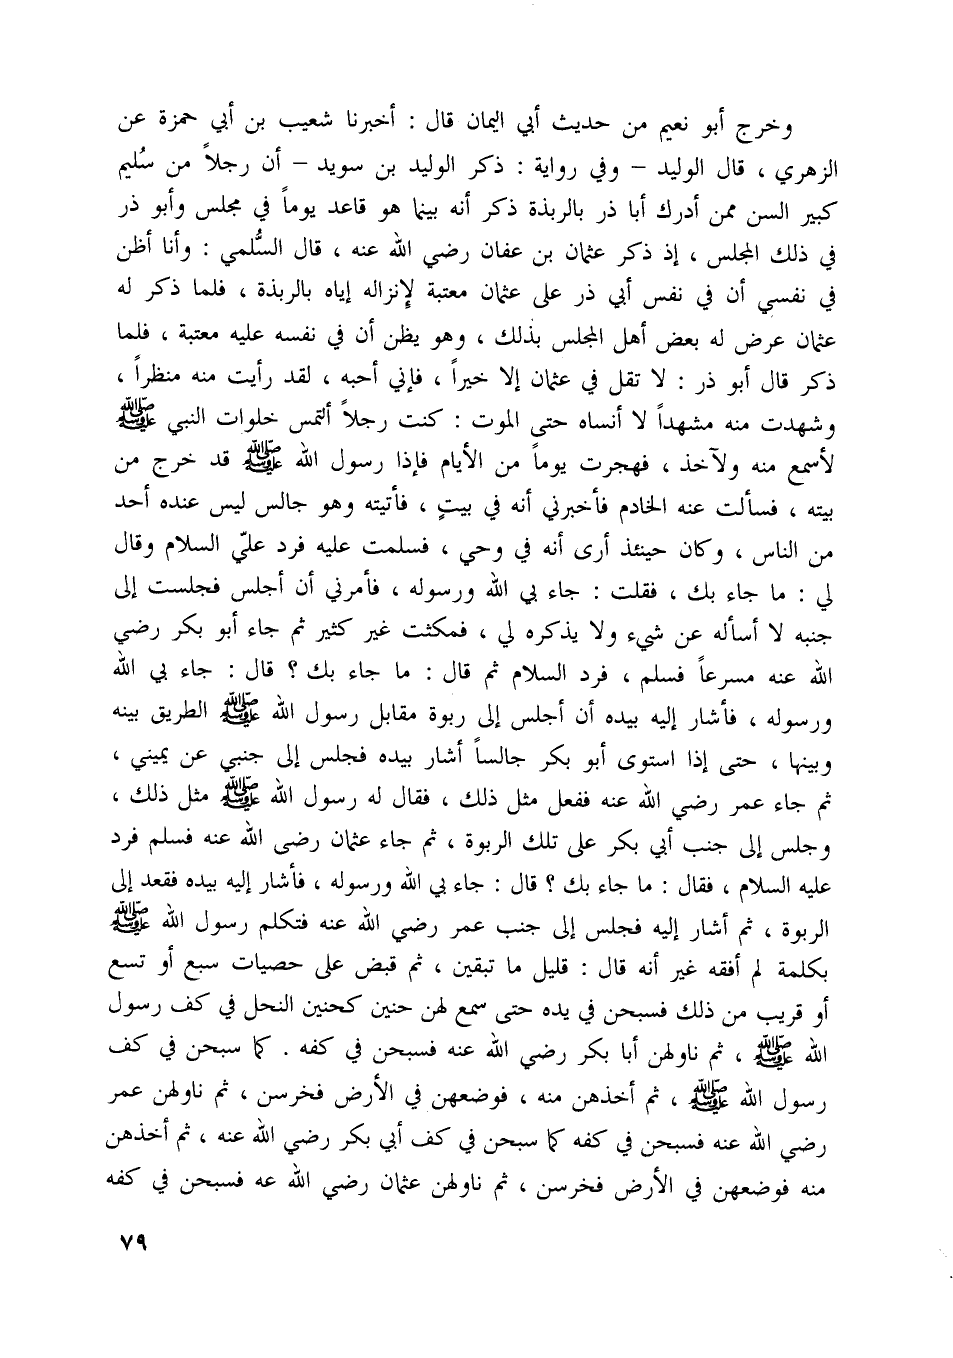 وخرج أبو نعيم من حديث أبي اليمان قال : أخبرنا شعيب بن أبي حمزة عن
الزهري ، قال الوليد – وفي رواية : ذكر الوليد بن سويد – أن رجلاً من سُليم
كبير السن ممن أدرك أبا ذر بالربذة ذكر أنه بينما هو قاعد يوماً في مجلس وأبو ذر
في ذلك المجلس ، إذ ذكر عثمان بن عفان رضي الله عنه ، قال السُّلمي : وأنا أظن
في نفسي أن في نفس أبي ذر على عثمان معتبة لإنزاله إياه بالربذة ، فلما ذكر له
عثمان عرض له بعض أهل المجلس بذلك ، وهو يظن أن في نفسه عليه معتبة ، فلما
ذكر قال أبو ذر : لا تقل في عثمان إلا خيراً ، فإني أحبه ، لقد رأيت منه منظراً ،
وشهدت منه مشهداً لا أنساه حتى الموت : كنت رجلاً ألتمس خلوات النبي ﷺ
لأسمع منه ولآخذ ، فهجرت يوماً من الأيام فإذا رسول الله ﷺ قد خرج من
بيته ، فسألت عنه الخادم فأخبرني أنه في بيتٍ ، فأتيته وهو جالس ليس عنده أحد
من الناس ، وكان حينئذ أرى أنه في وحي ، فسلمت عليه فرد عليّ السلام وقال
لي : ما جاء بك ، فقلت : جاء بي الله ورسوله ، فأمرني أن أجلس فجلست إلى
جنبه لا أسأله عن شيء ولا يذكره لي ، فمكثت غير كثير ثم جاء أبو بكر رضي
الله عنه مسرعاً فسلم ، فرد السلام ثم قال : ما جاء بك ؟ قال : جاء بي الله
ورسوله ، فأشار إليه بيده أن أجلس إلى ربوة مقابل رسول الله ﷺ الطريق بينه
وبينها ، حتى إذا استوى أبو بكر جالساً أشار بيده فجلس إلى جنبي عن يميني ،
ثم جاء عمر رضي الله عنه ففعل مثل ذلك ، فقال له رسول الله ﷺ مثل ذلك ،
وجلس إلى جنب أبي بكر على تلك الربوة ، ثم جاء عثمان رضى الله عنه فسلم فرد
عليه السلام ، فقال : ما جاء بك ؟ قال : جاء بي الله ورسوله ، فأشار إليه بيده فقعد إلى
الربوة ، ثم أشار إليه فجلس إلى جنب عمر رضي الله عنه فتكلم رسول الله ﷺ
بكلمة لم أفقه غير أنه قال : قليل ما تبقين ، ثم قبض على حصيات سبع أو تسع
أو قريب من ذلك فسبحن في يده حتى سمع لهن حنين كحنين النحل في كف رسول
الله ﷺ ، ثم ناولهن أبا بكر رضي الله عنه فسبحن في كفه . كما سبحن في كف
رسول الله ﷺ ، ثم أخذهن منه ، فوضعهن في الأرض فخرسن ، ثم ناولهن عمر
رضي الله عنه فسبحن في كفه كما سبحن في كف أبي بكر رضي الله عنه ، ثم أخذهن
منه فوضعهن في الأرض فخرسن ، ثم ناولهن عثمان رضي الله عه فسبحن في كفه
٧٩